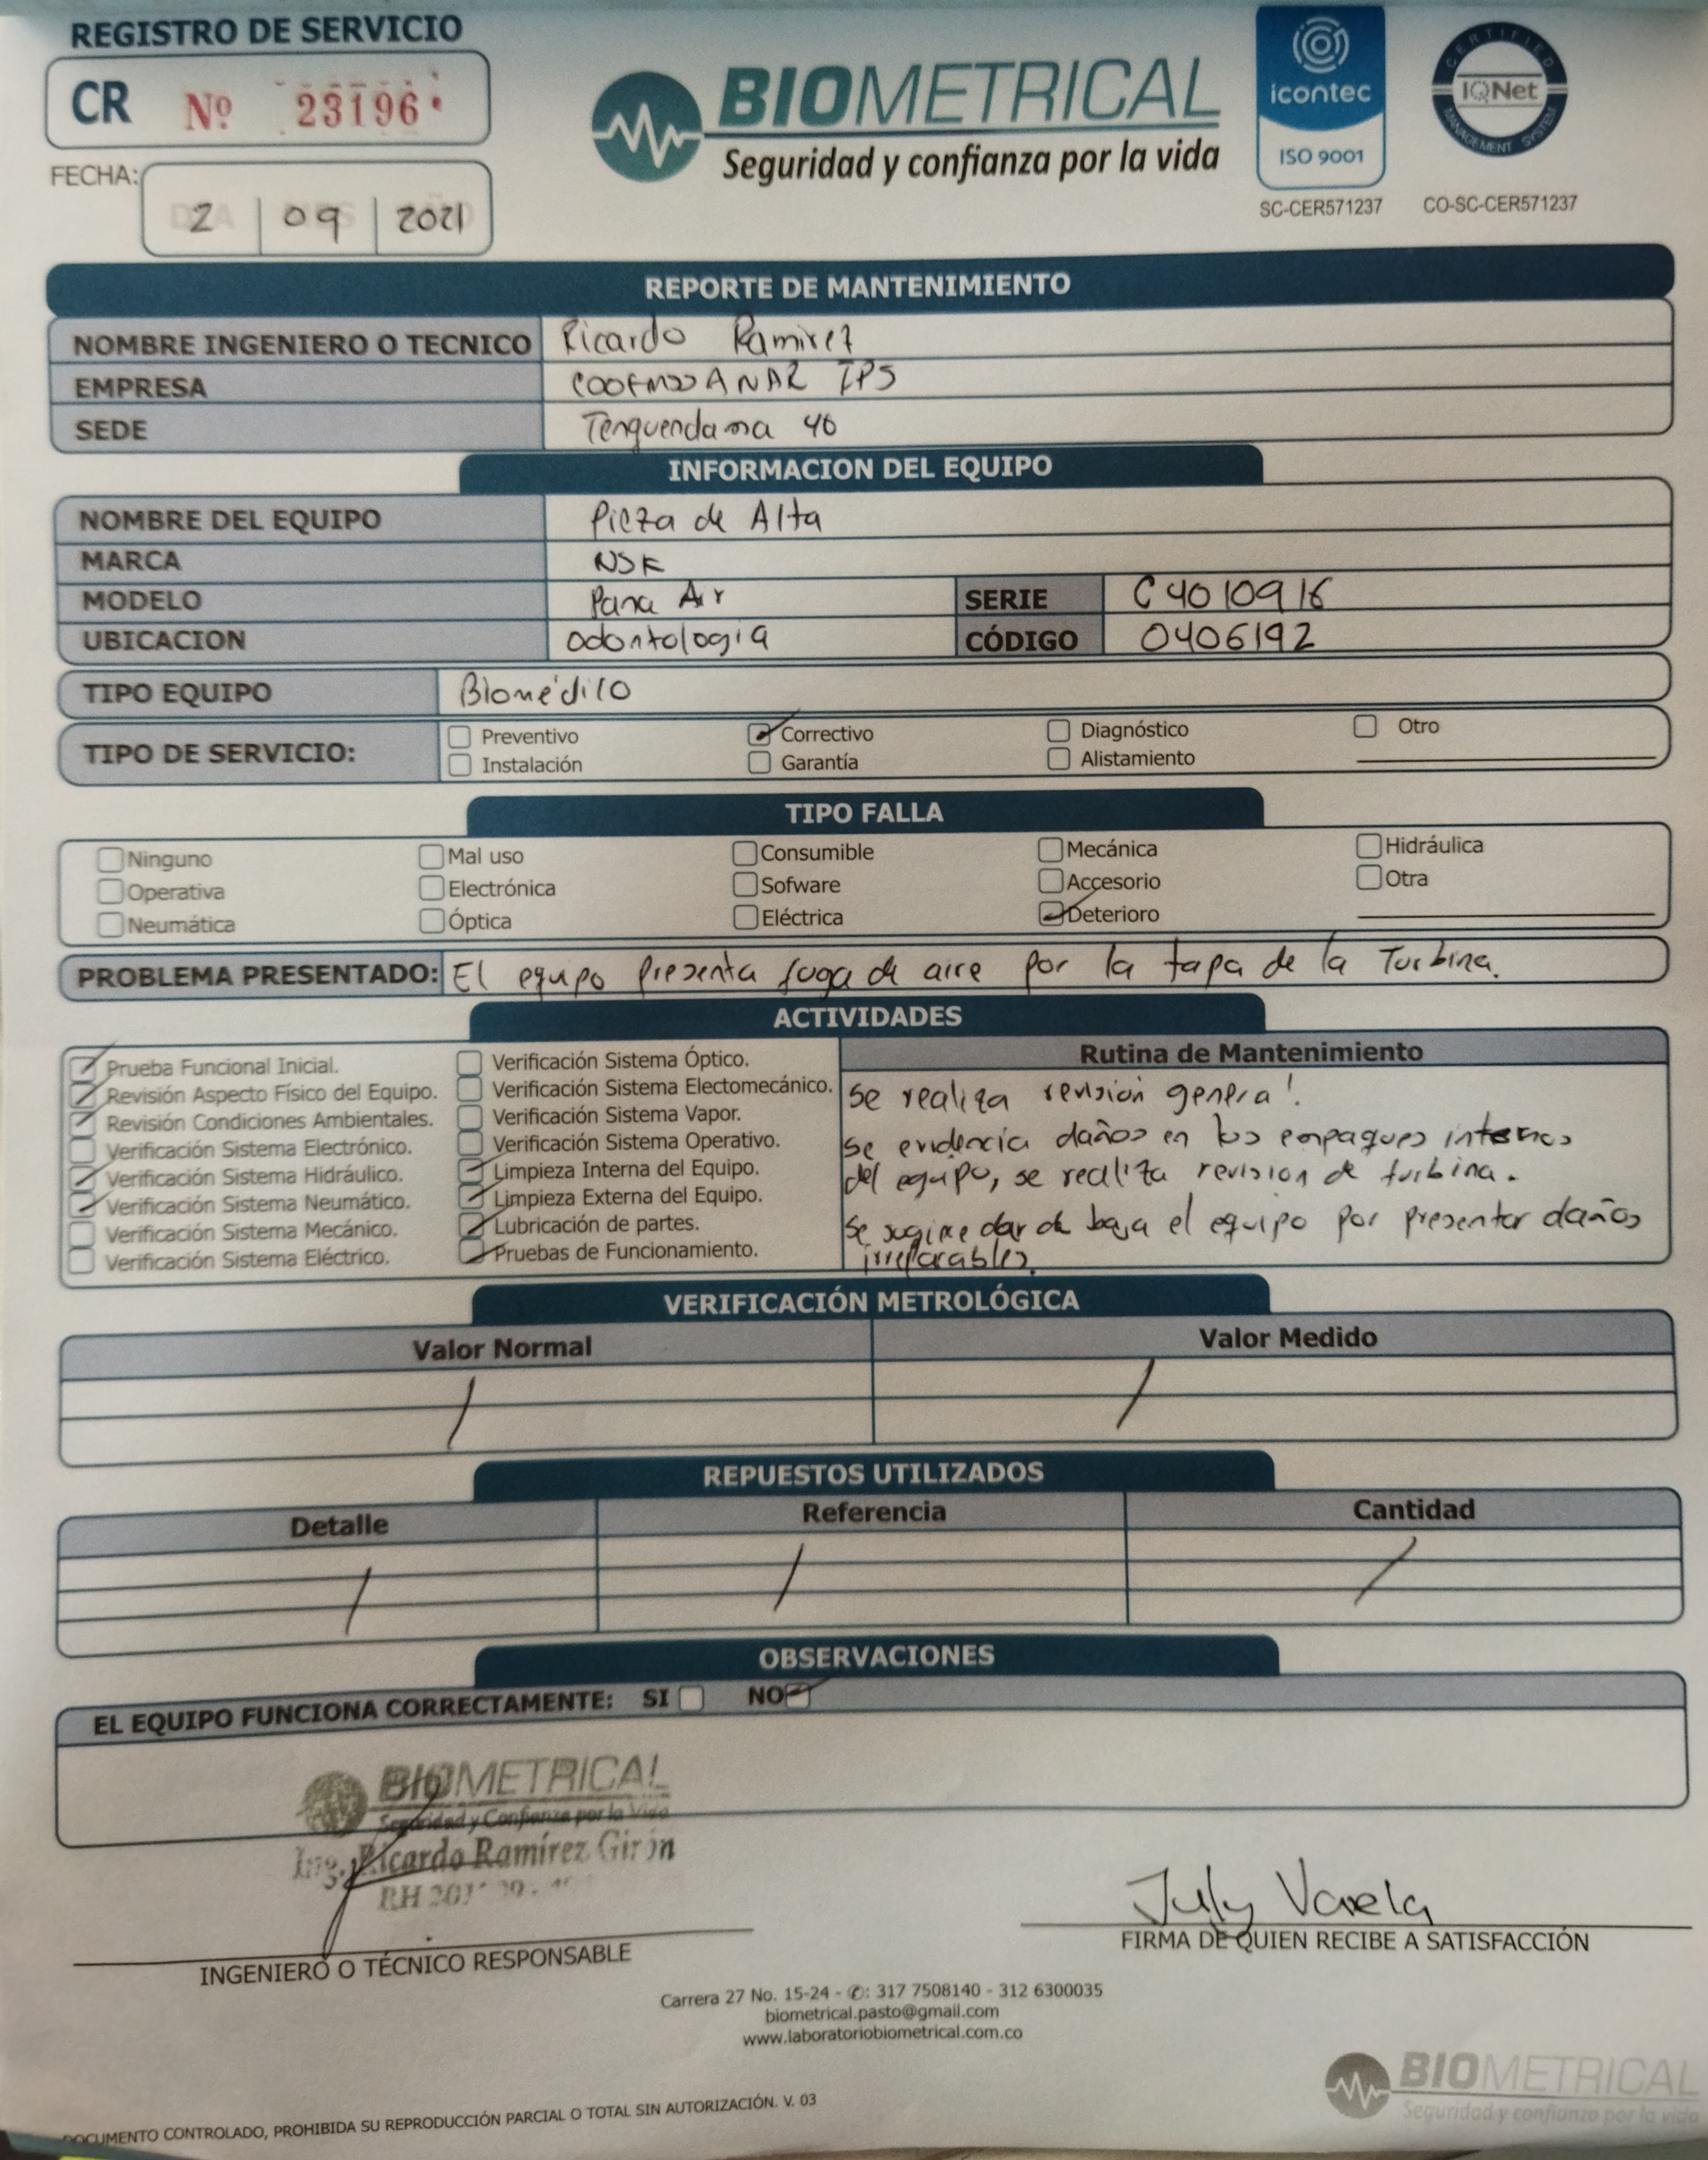 REGISTRO DE SERVICIO
CR Nº 23196
BIOMETRICAL
Seguridad y confianza por la vida
icontec
ISO 9001
SC-CER571237
CERTIFIED
IQNet
MANAGEMENT SYSTEM
CO-SC-CER571237
FECHA: 2 09 2021
REPORTE DE MANTENIMIENTO
NOMBRE INGENIERO O TECNICO Ricardo Ramirez
EMPRESA IPS
SEDE 40
INFORMACION DEL EQUIPO
NOMBRE DEL EQUIPO Pieza de Alta
MARCA NSK
MODELO Pana Air SERIE C4010916
UBICACION odontologia CÓDIGO 0406192
TIPO EQUIPO Biomédico
TIPO DE SERVICIO: Preventivo Correctivo Diagnóstico Otro
Instalación Garantía Alistamiento
TIPO FALLA
Ninguno Mal uso Consumible Mecánica Hidráulica
Operativa Electrónica Sofware Accesorio Otra
Neumática Óptica Eléctrica Deterioro
PROBLEMA PRESENTADO: El equipo presenta fuga de aire por la tapa de la Turbina.
ACTIVIDADES
Prueba Funcional Inicial.
Revisión Aspecto Físico del Equipo.
Revisión Condiciones Ambientales.
Verificación Sistema Electrónico.
Verificación Sistema Hidráulico.
Verificación Sistema Neumático.
Verificación Sistema Mecánico.
Verificación Sistema Eléctrico.
Verificación Sistema Óptico.
Verificación Sistema Electomecánico.
Verificación Sistema Vapor.
Verificación Sistema Operativo.
Limpieza Interna del Equipo.
Limpieza Externa del Equipo.
Lubricación de partes.
Pruebas de Funcionamiento.
Rutina de Mantenimiento
Se realiza revisión general.
Se evidencia daños en los empaques internos
del equipo, se realiza revision de turbina.
Se sugiere dar de baja el equipo por presentar daños
irreparables.
VERIFICACIÓN METROLÓGICA
Valor Normal Valor Medido
REPUESTOS UTILIZADOS
Detalle Referencia Cantidad
OBSERVACIONES
EL EQUIPO FUNCIONA CORRECTAMENTE: SI NO
BIOMETRICAL
Seguridad y Confianza por la Vida
Ing. Ricardo Ramírez Girón
July Varela
INGENIERO O TÉCNICO RESPONSABLE
FIRMA DE QUIEN RECIBE A SATISFACCIÓN
Carrera 27 No. 15-24 - ✆: 317 7508140 - 312 6300035
biometrical.pasto@gmail.com
www.laboratoriobiometrical.com.co
BIOMETRICAL
Seguridad y confianza por la vida
DOCUMENTO CONTROLADO, PROHIBIDA SU REPRODUCCIÓN PARCIAL O TOTAL SIN AUTORIZACIÓN. V. 03